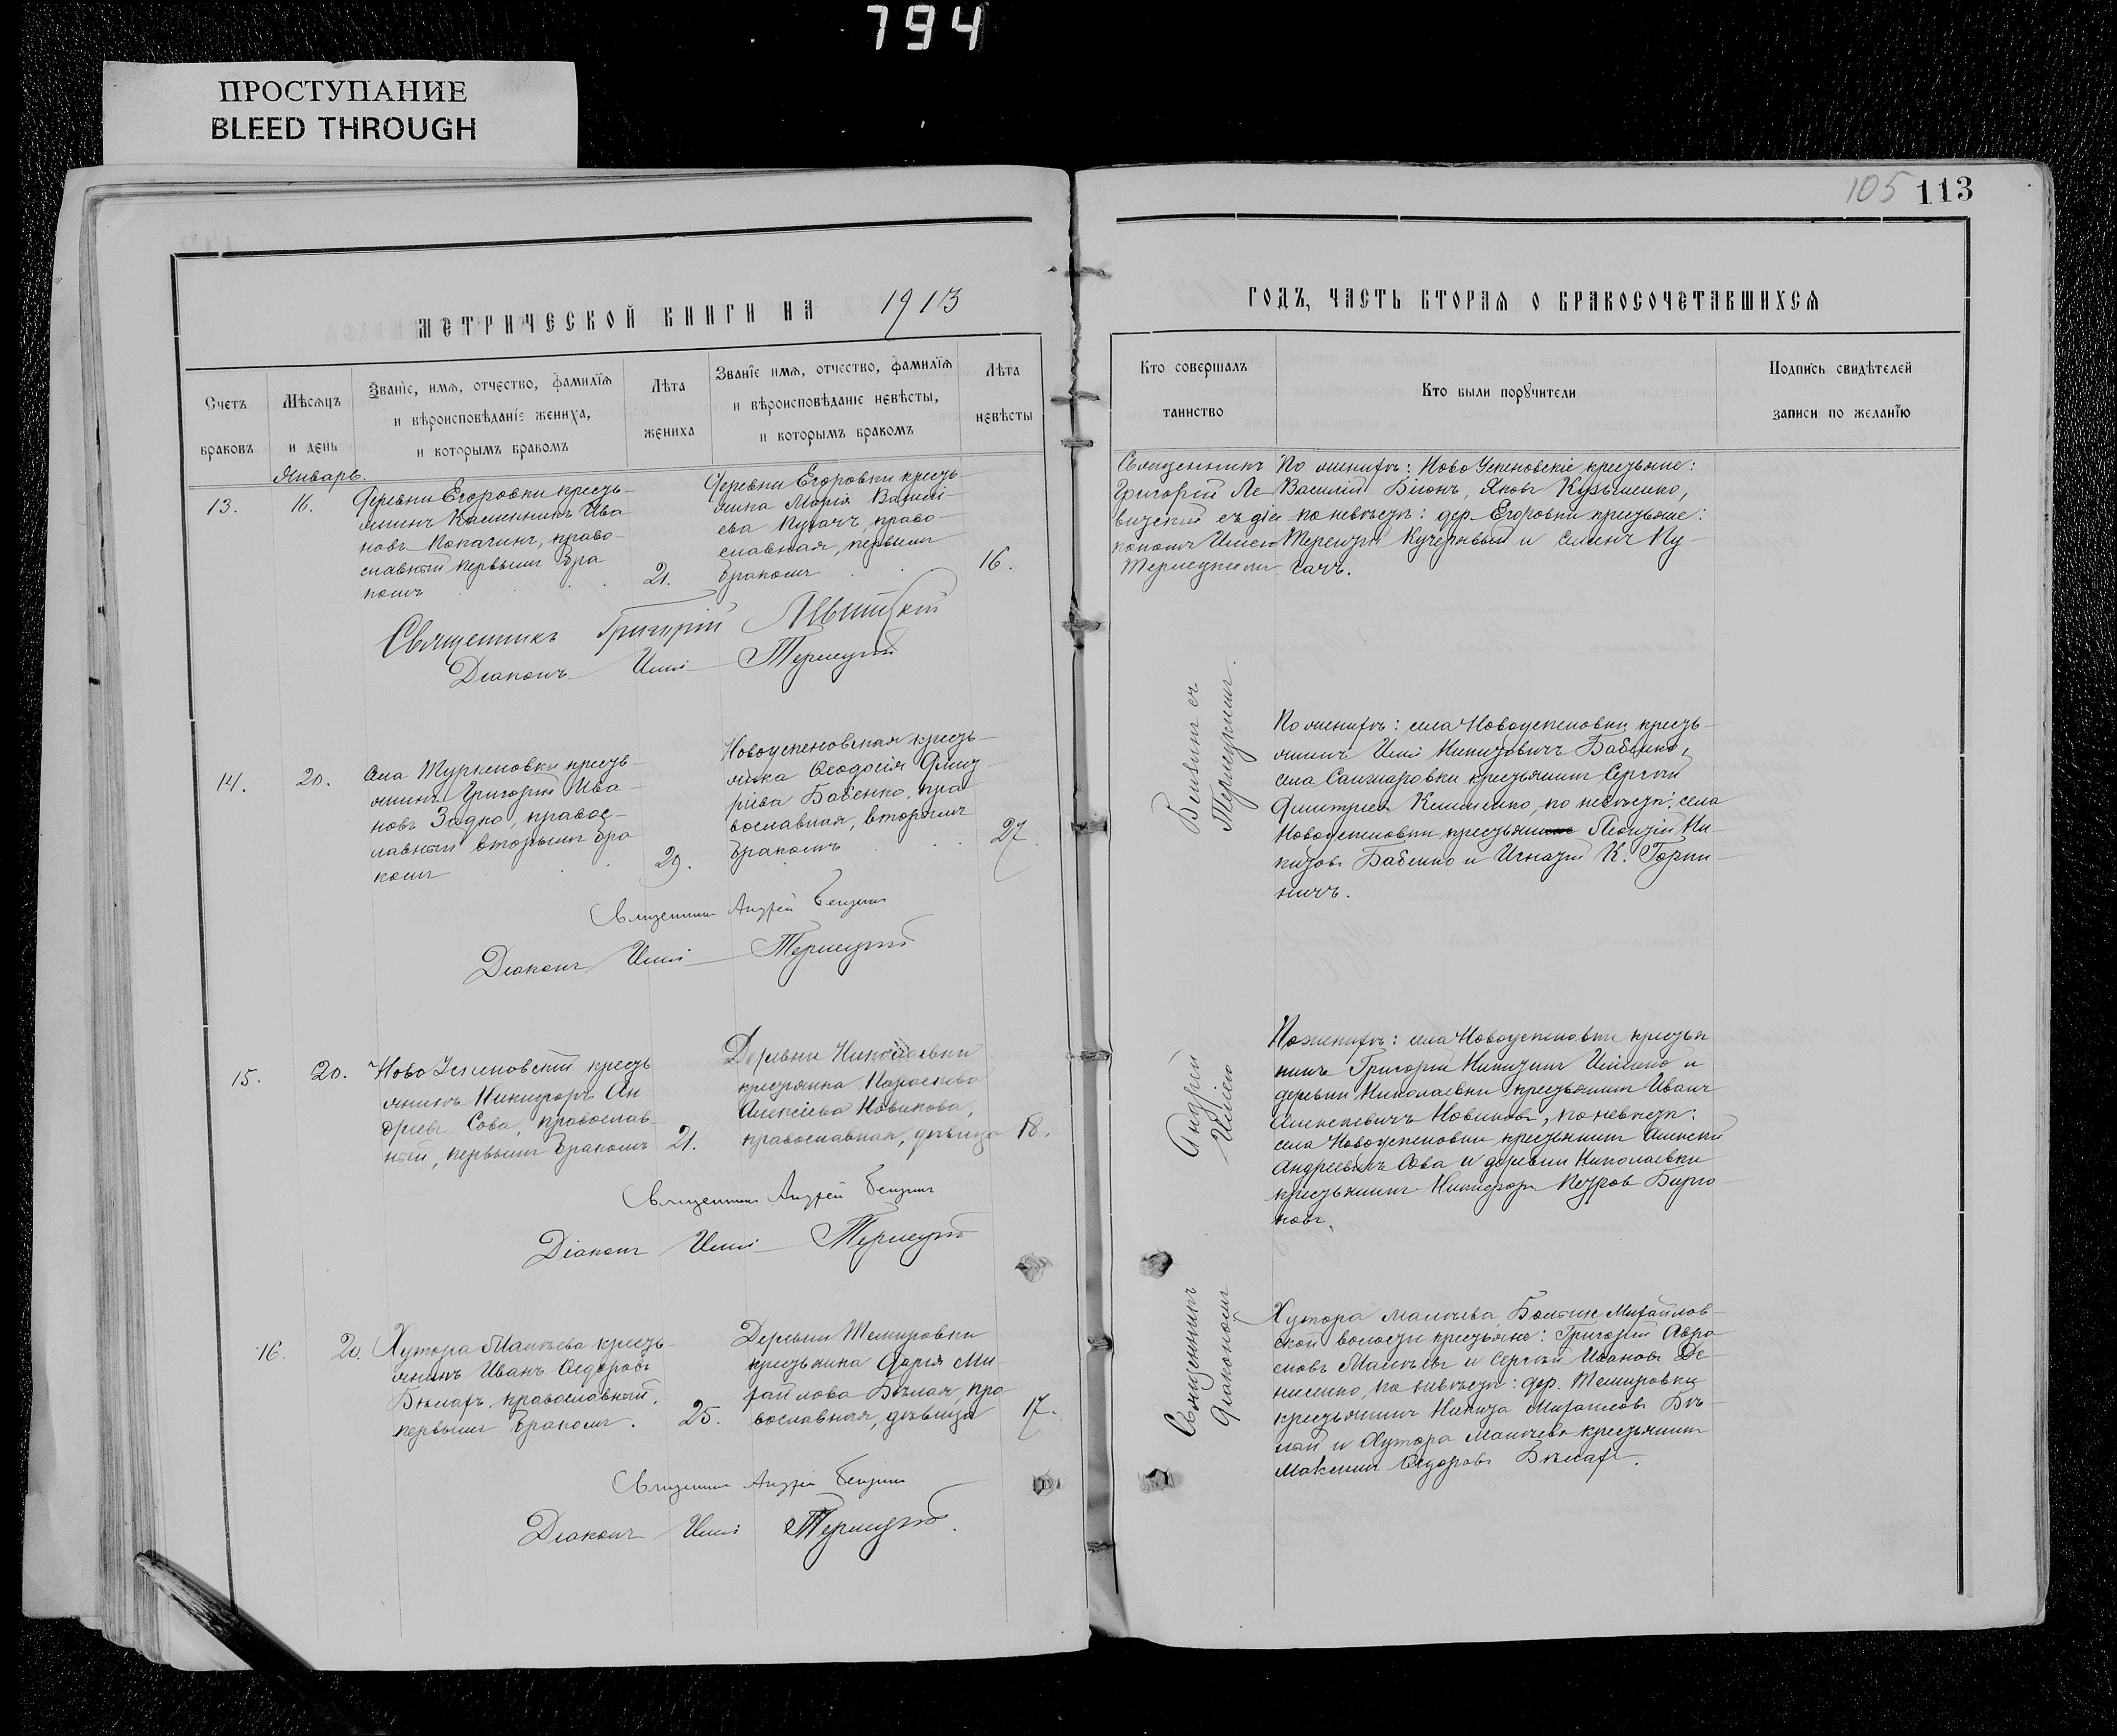 794
ПРОСТУПАНИЕ
BLEED THROUGH
105 113
МЕТРИЧЕСКОЙ КНИГИ НА 1913
ГОДЪ, ЧАСТЬ ВТОРАЯ О БРАКОСОЧЕТАВШИХСЯ
Счетъ браковъ
Мѣсяцъ и день
Званіе, имя, отчество, фамилія
и вѣроисповѣданіе жениха,
и которымъ бракомъ
Лѣта жениха
Званіе имя, отчество, фамилія
и вѣроисповѣданіе невѣсты,
и которымъ бракомъ
Лѣта невѣсты
Кто совершалъ
таинство
Кто были поручители
Подпись свидѣтелей
записи по желанію
Январь.
13.
16.
Деревни Егоровки кресть-
янинъ Ива-
новъ Копачинъ, право-
славный первымъ бра
комъ
21.
Деревни Егоровки кресть-
янка Марія Василі-
ева Кугачъ, право-
славная, первымъ
бракомъ
16.
Священникъ Григорій Левитскій
Діаконъ Илія
Священникъ
Григорій Ле
витскій съ діа
кономъ Иліею
По женихѣ: Ново Успеновскіе крестьяне:
Василій Білонъ, Яковъ Кузьменко,
по невѣстѣ: дер. Егоровки крестьяне:
Терентій Кучерявый и Семенъ Ку-
гачъ.
14.
20.
Села Туркеновки кресть-
янинъ Григорій Ива-
новъ Задко, правос-
лавный вторымъ бра
комъ
29.
Новоуспеновская кресть-
янка Ѳеодосія Дмит-
ріева Бабенко, пра
вославная, вторымъ
бракомъ
27
Священникъ Андрей
Діаконъ Илія
По женихѣ: села Новоуспеновки кресть-
янинъ Илія Никитовичъ Бабенко,
села Санжаровки крестьянинъ Сергѣй
Дмитріевъ Клименко, по невѣстѣ: села
Новоуспеновки крестьяне Леонтій Ни-
китовъ Бабенко и Игнатій К. Горпи-
ничъ.
15.
20.
Ново Успеновскій кресть
янинъ Никифоръ Ан
дреевъ Сова, православ-
ный, первымъ бракомъ
21.
Деревни Николаевки
крестьянка Параскева
Алексіева Новикова,
православная, дѣвица
18.
Священникъ Андрей
Діаконъ Илія
По женихѣ: села Новоуспеновки крестья
нинъ Григорій Никитинъ и
деревни Николаевки крестьянинъ Иванъ
Алексіевичъ Новиковъ, по невѣстѣ:
села Новоуспеновки крестьянинъ Алексѣй
Андреевичъ Сова и деревни Николаевки
крестьянинъ Никифоръ Петровъ Бирю
ковъ.
16.
20.
Хутора Малѣева кресть-
янинъ Иванъ Ѳедоровъ
православный,
первымъ бракомъ.
25.
Деревни Темировки
крестьянка Дарія Ми-
хайлова Бѣлая, пра
вославная, дѣвица
17.
Священникъ Андрей
Діаконъ Илія
Священникъ Андрей
Діакономъ Иліею
Хутора Малѣева, Больше Михайлов-
ской волости крестьяне: Григорій Авра
мовъ Малѣевъ и Сергѣй Ивановъ Де-
нисенко, по невѣстѣ: дер. Темировки
крестьянинъ Никита Михайловъ Бѣ-
лый и Хутора Малѣева крестьянинъ
Максимъ Ѳедоровъ